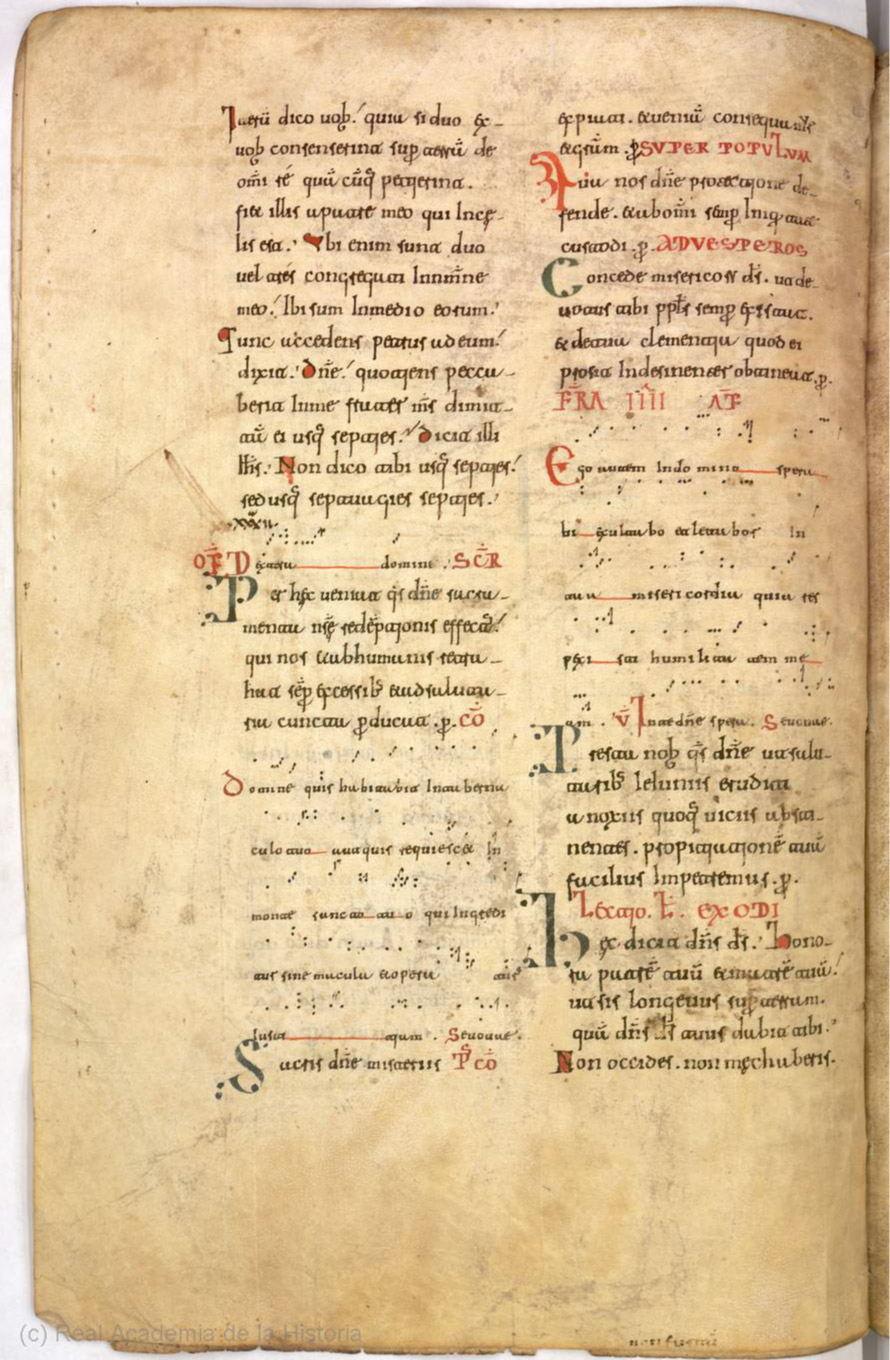 Iterū dico uob̄. quia si duo ex-
uob̄ consenserint sup̄ terrā de
om̄i re quācūq̄ petierint.
fiet illis a patre meo qui In cę-
lis est. Ubi enim sunt duo
uel tres congregati In nomīne
meo. Ibi sum In medio eorum.
Tunc accedens petrus ad eum.
dixit. Dn̄e. quotiens pecca-
berit In me frater m̄s dimit-
tā ei usq̄ septies. Dicit illi
ih̄s. Non dico tibi usq̄ septies.
sed usq̄ septuagies septies.
xxxii
OF̄ Dextera domini. SCR̄
Per hęc ueniat q̄s dn̄e sacra-
menta nr̄ę redēptionis effect.
qui nos et ab humanis retra-
hat sēp̄ excessib; et ad saluta-
ria cuncta p̄ducat. p̄. CŌ
Domine quis habitabit In taberna
culo tuo aut quis requiescet In
monte sancto tuo qui Ingredi
tur sine macula et operatur
Iusti tiam. Seuouae.
Sacris dn̄e misteriis P̄ CŌ
expiati. et ueniā consequamur
et grām. p̄. SUPER POPULUM
Tua nos dn̄e protectione de-
fende. et ab om̄i semp̄ Iniq̄tate
custodi. p̄. AD UESPEROS
Concede misericors d̄s. ut de-
uotus tibi pp̄ls semp̄ existat.
et de tua clementia quod ei
prosit Indesinenter obtineat. p̄.
FR̄A IIII AT̄
Ego autem In domino spera
bi exultabo et letabor In
tua misericordia quia res
pexi sti humilita tem me
am. V̄ In te dn̄e spera. Seuouae.
Presta nob̄ q̄s dn̄e ut salu-
tarib; Ieiuniis eruditi
a noxiis quoq̄ uiciis absti-
nentes. propitiationē tuā
facilius Impetremus. p̄.
Lectio. L. EXODI
Hęc dicit dn̄s d̄s. Hono-
ra patrē tuū et matrē tuā.
ut sis longeuus sup̄ terram.
quā dn̄s d̄s tuus dabit tibi.
Non occides. non męchaberis.
(c) Real Academia de la Historia